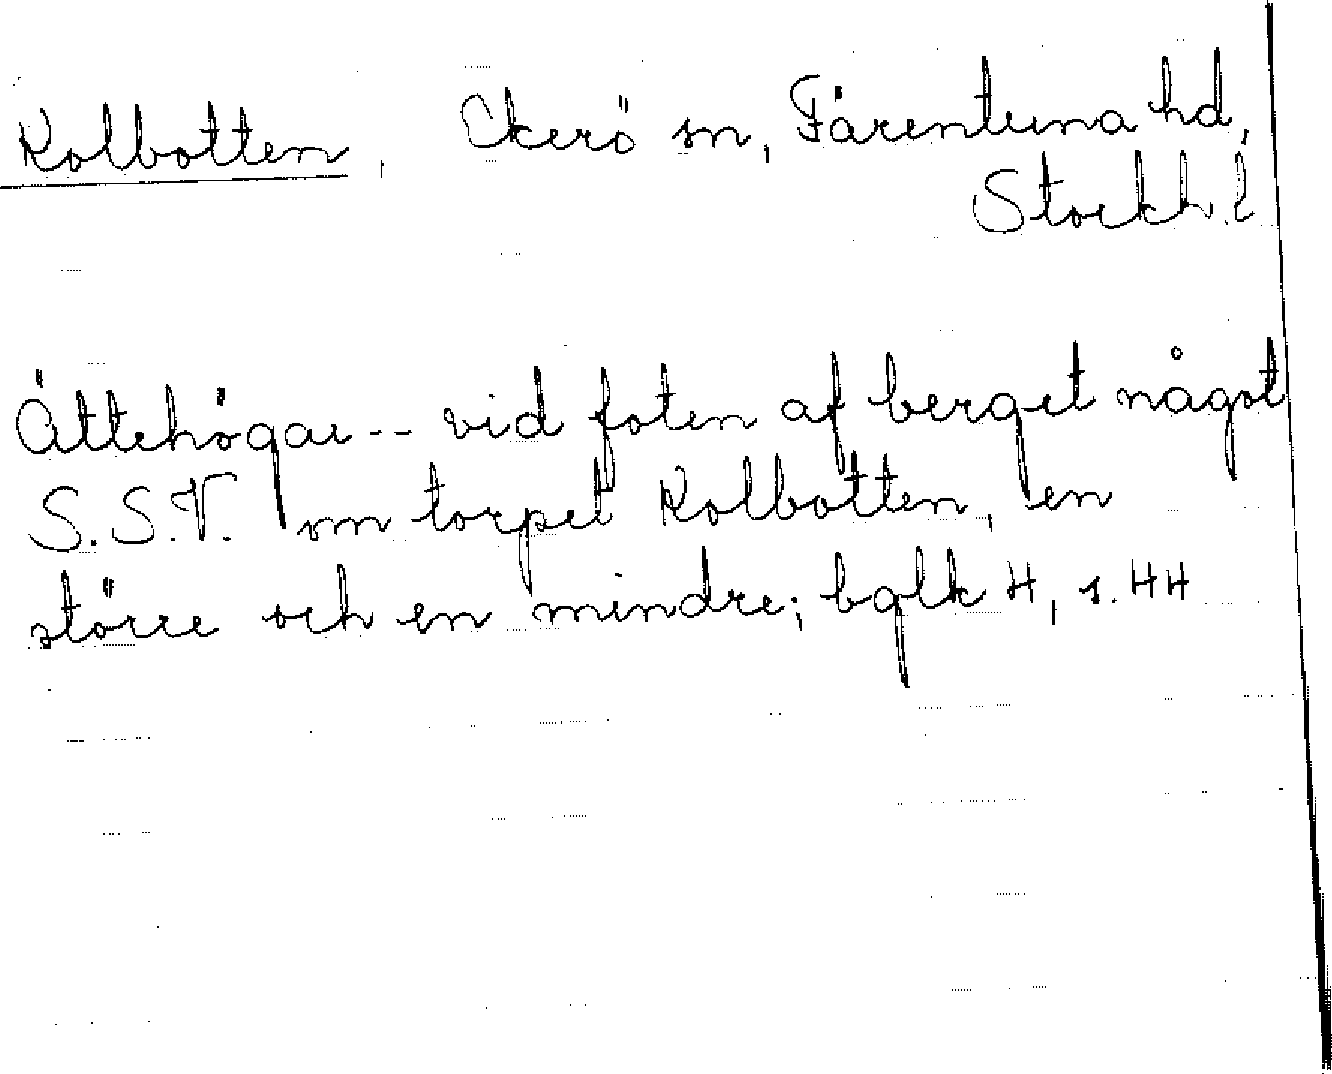 Kolbotten, Ekerö sn, Färentuna hd,
Stockh. l
Ättehögar -- vid foten af berget något
S.S.V. om torpet Kolbotten, en
större och en mindre; bglk 4, s. 44